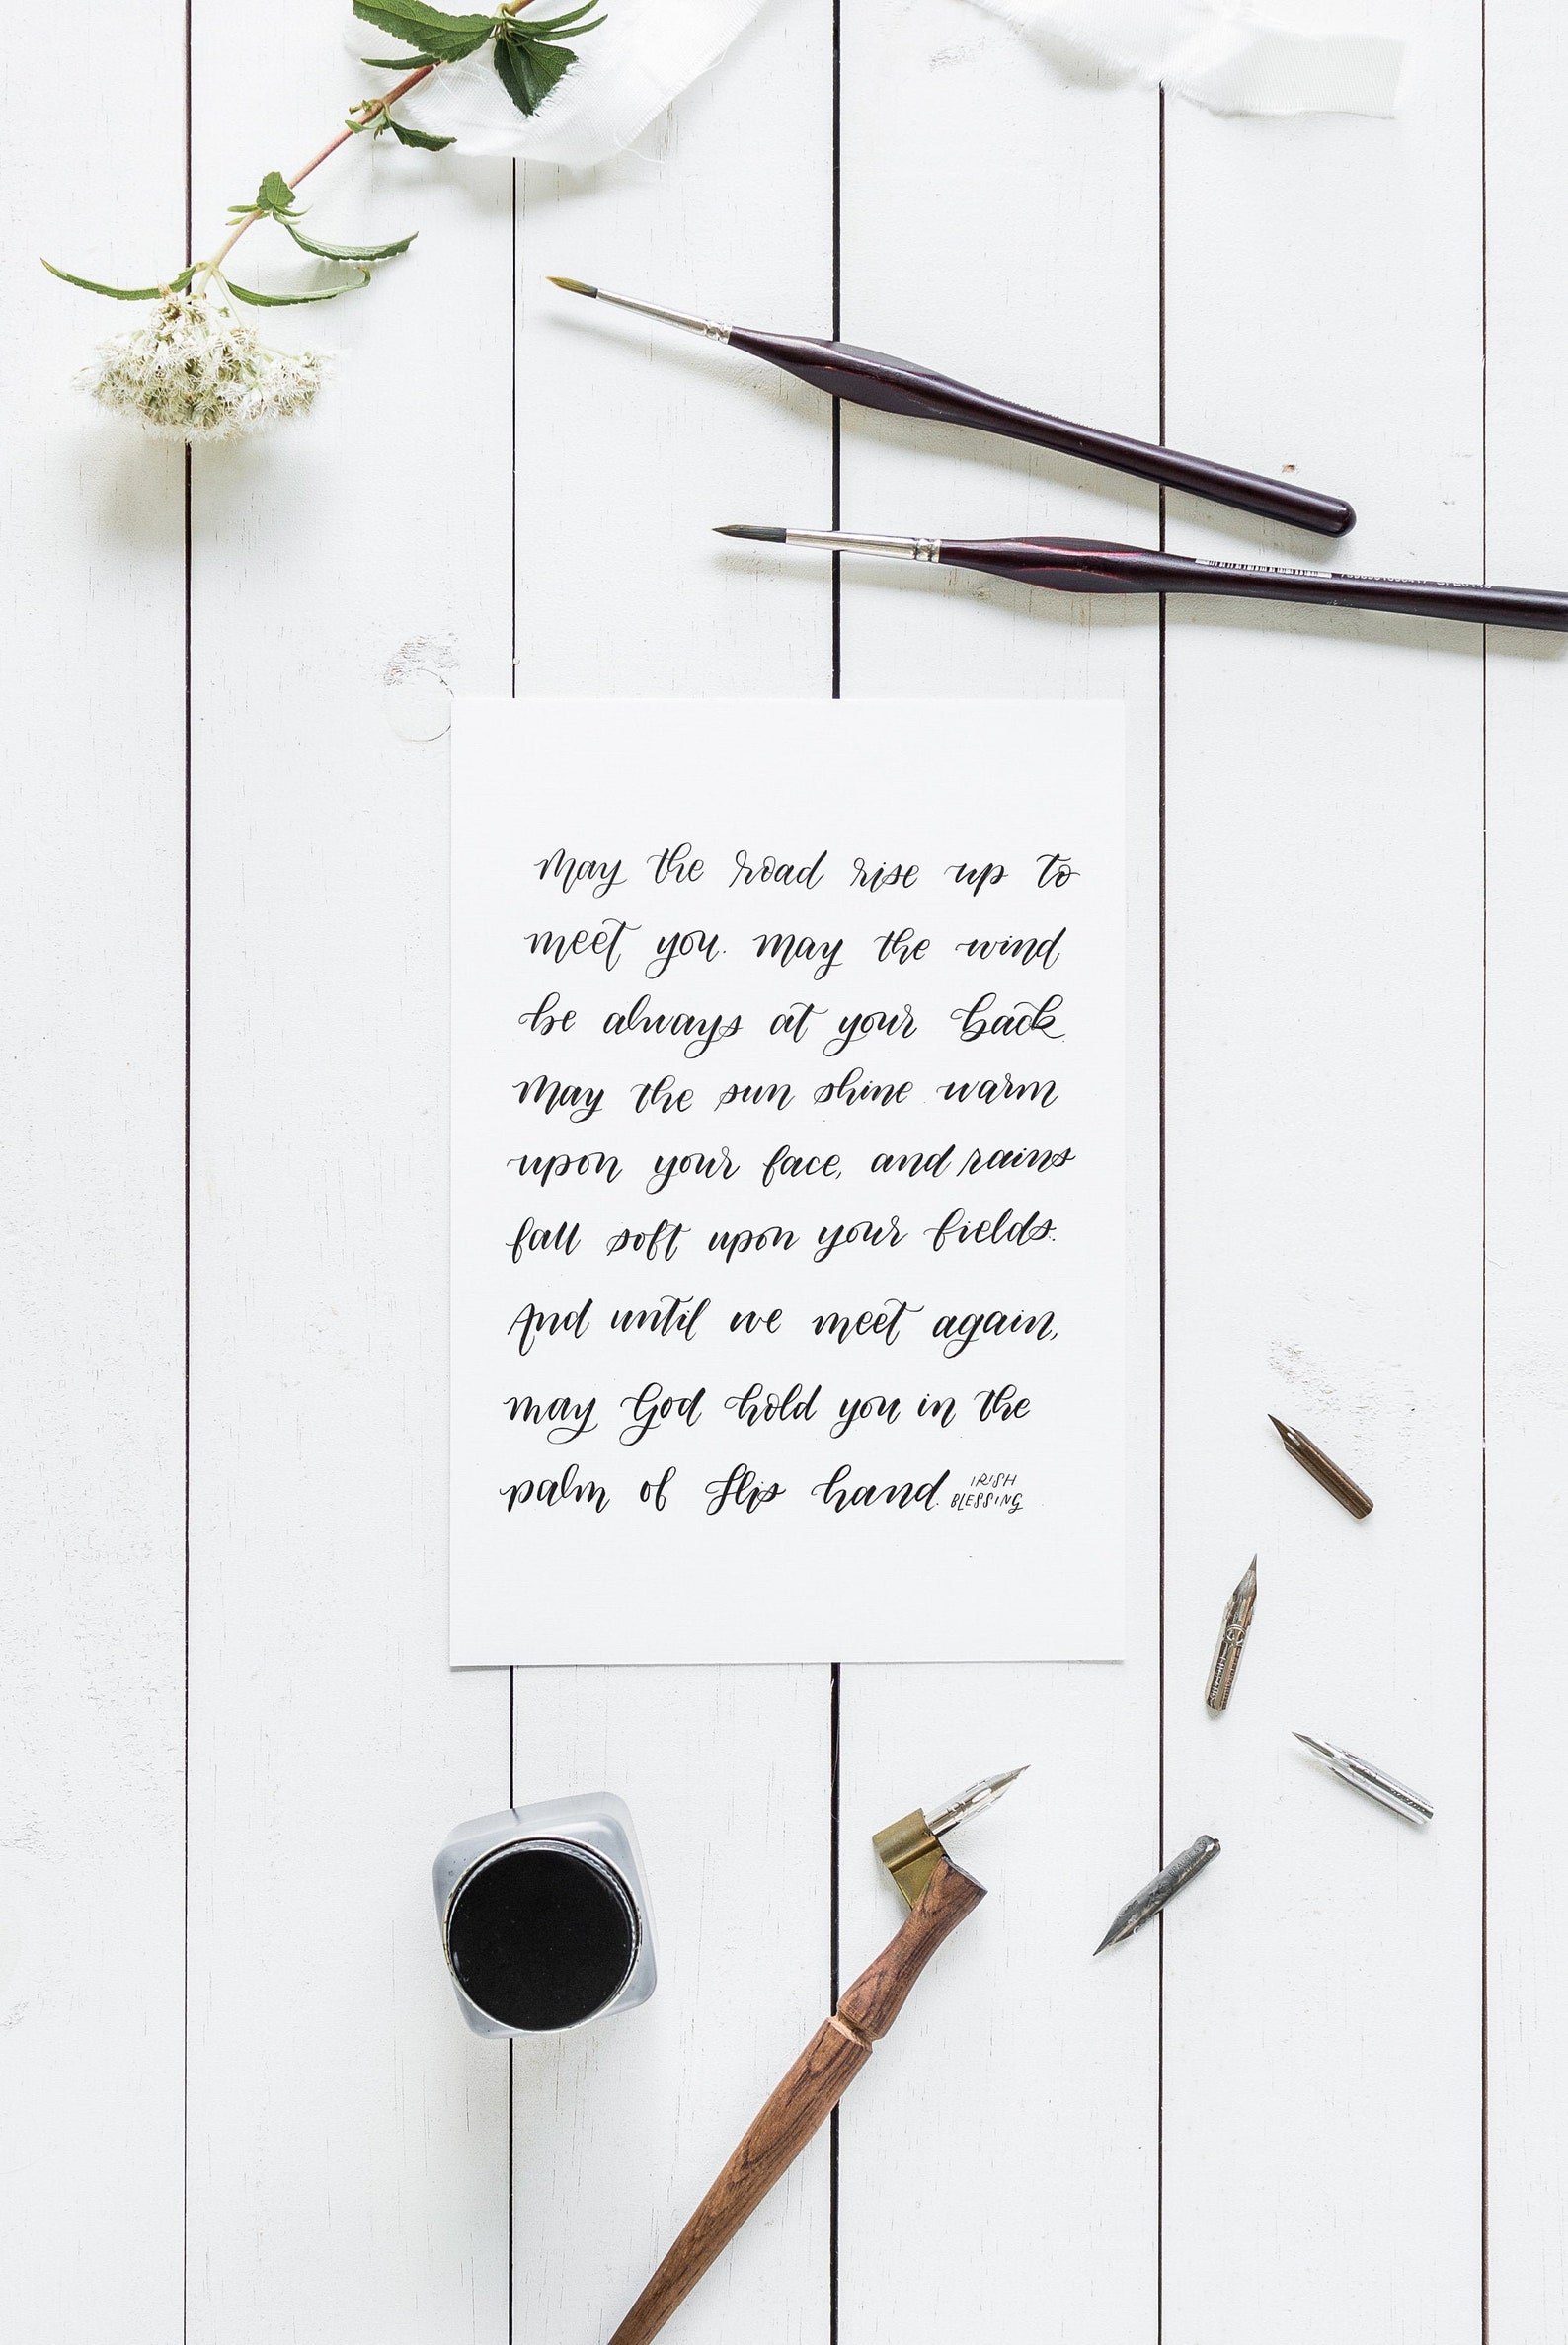 may the road rise up to
meet you. may the wind
be always at your back.
May the sun shine warm
upon your face, and rains
fall soft upon your fields.
And until we meet again,
may God hold you in the
palm of His hand.
IRISH
BLESSING